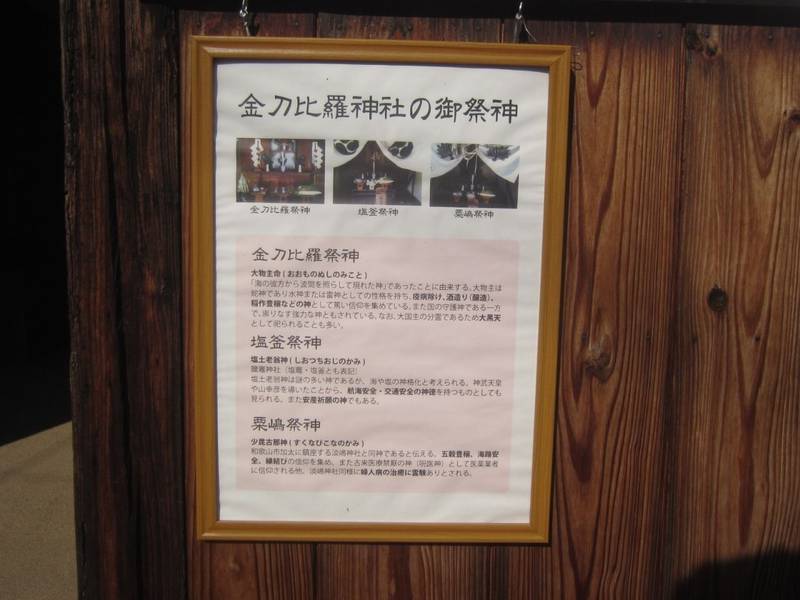 金刀比羅神社の御祭神
金刀比羅祭神 塩釜祭神 粟嶋祭神
金刀比羅祭神
大物主命(おおものぬしのみこと)
「海の彼方から波間を照らして現れた神」であったことに由来する。大物主は
蛇神であり水神または雷神としての性格を持ち、疫病除け、酒造り(醸造)、
稲作豊穣などの神として篤い信仰を集めている。また国の守護神である一方
で、祟りなす強力な神ともされている。なお、大国主の分霊であるため大黒天
として祀られることも多い。
塩釜祭神
塩土老翁神(しおつちおじのかみ)
鹽竈神社(塩竈・塩釜とも表記)
塩土老翁神は謎の多い神であるが、海や塩の神格化と考えられる。神武天皇
や山幸彦を導いたことから、航海安全・交通安全の神徳を持つものとしても
見られる。また安産祈願の神でもある。
粟嶋祭神
少毘古那神(すくなびこなのかみ)
和歌山市加太に鎮座する淡嶋神社と同神であると伝える。五穀豊穣、海路安
全、縁結びの信仰を集め、また古来医療禁厭の神(明医神)として医薬業者
に信仰される他、淡嶋神社同様に婦人病の治癒に霊験ありとされる。